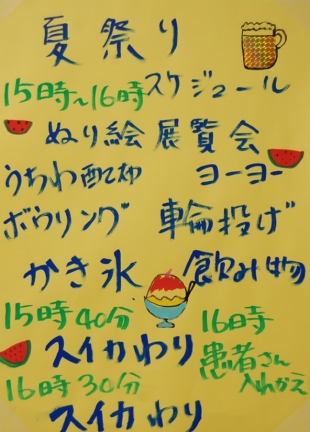 夏祭り
15時～16時スケジュール
ぬり絵展覧会
うちわ配布 ヨーヨー
ボウリング 輪投げ
かき氷 飲み物
15時40分 16時
スイカわり 患者さん
16時30分 入れかえ
スイカわり